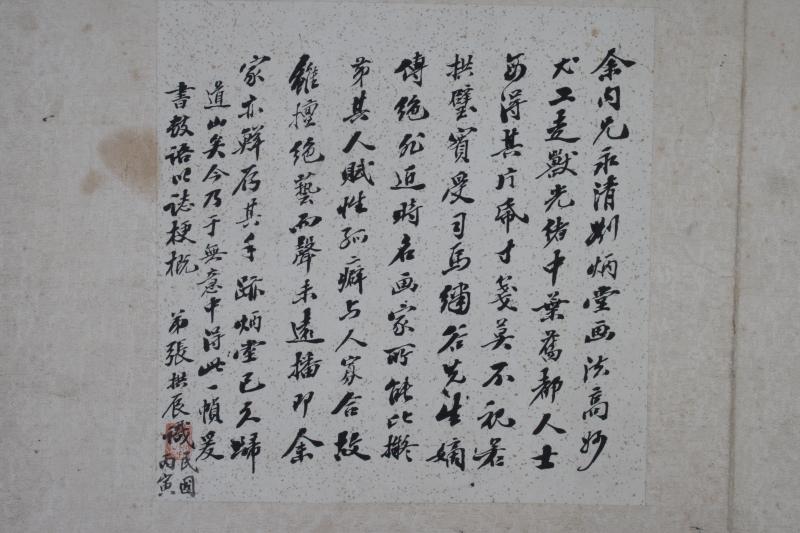 余内兄永清刘炳堂画法高妙
尤工走獸光緒中葉舊都人士
每得其片帋寸箋莫不視若
拱璧實受司馬繡谷先生嫡
傳絶非近時名画家所能比擬
第其人賦性孤癖与人寡合故
雖擅絶藝而聲未遠播即余
家亦鮮存其手跡炳堂已久歸
道山矣今乃于無意中得此一幀爰
書數語以誌梗概
弟張拱辰識
民國丙寅